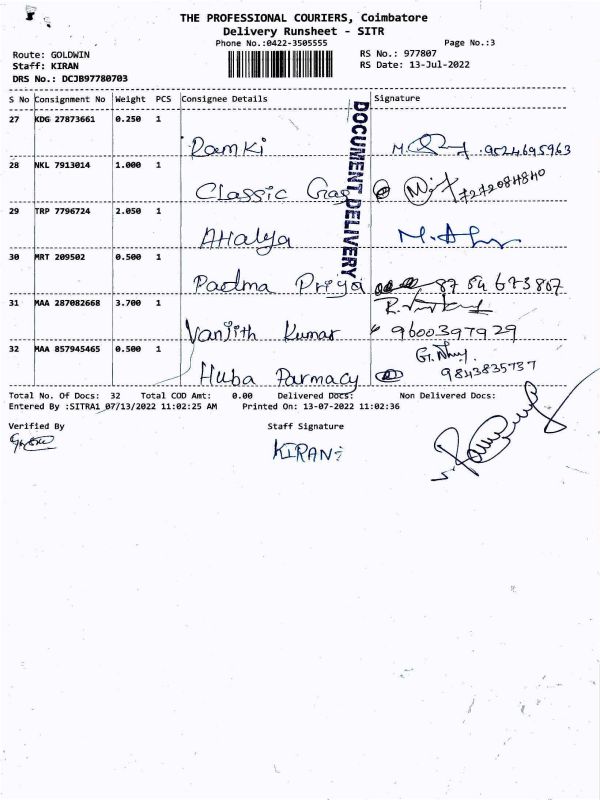 THE PROFESSIONAL COURIERS, Coimbatore
Delivery Runsheet - SITR
Phone No.:0422-3505555 Page No.:3
Route: GOLDWIN RS No.: 977807
Staff: KIRAN RS Date: 13-Jul-2022
DRS No.: DCJB97780703
S No Consignment No Weight PCS Consignee Details Signature
27 KDG 27873661 0.250 1
Ramki 9524695963
28 NKL 7913014 1.000 1
Classic Gas 7272084840
29 TRP 7796724 2.050 1
AHalya
30 MRT 209502 0.500 1
Padma Priya 87 54 673807
31 MAA 287082668 3.700 1
Vanjith Kumar 9600397929
32 MAA 857945465 0.500 1
Huba Parmacy 9843835737
DOCUMENT DELIVERY
Total No. Of Docs: 32 Total COD Amt: 0.00 Delivered Docs: Non Delivered Docs:
Entered By :SITRA1 07/13/2022 11:02:25 AM Printed On: 13-07-2022 11:02:36
Verified By Staff Signature
KIRAN